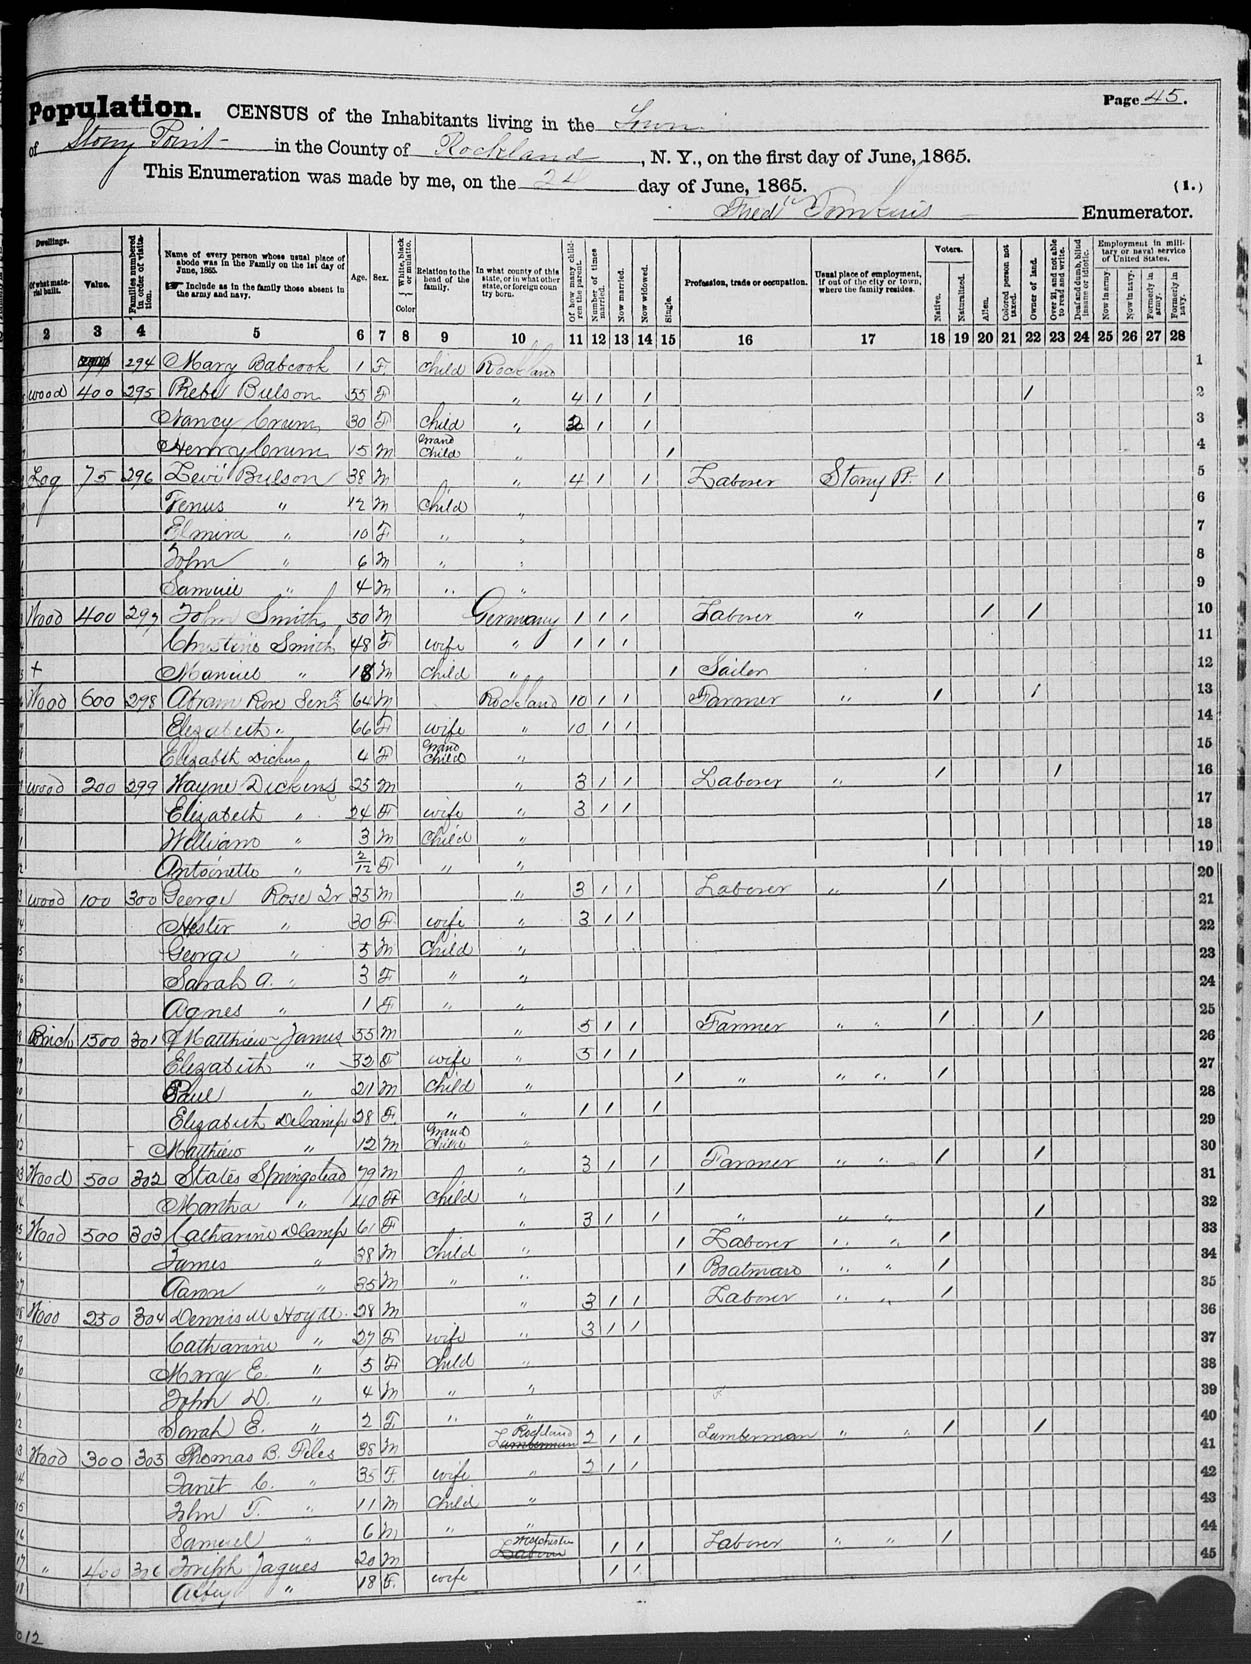 Page 45.
Population. CENSUS of the Inhabitants living in the Town
of Stony Point in the County of Rockland, N. Y., on the first day of June, 1865.
This Enumeration was made by me, on the 24 day of June, 1865. (1.)
Fred Tomkins Enumerator.
Dwellings. Of what material built. Value. Families numbered in order of visitation. Name of every person whose usual place of abode was in the Family on the 1st day of June, 1865. Include as in the family those absent in the army and navy. Age. Sex. Color { White, black or mulatto. Relation to the head of the family. In what county of this state, or in what other state, or foreign country born. Of how many children the parent. Number of times married. Now married. Now widowed. Single. Profession, trade or occupation. Usual place of employment, if out of the city or town, where the family resides. Voters. Native. Naturalized. Alien. Colored person not taxed. Owner of land. Over 21, and not able to read and write. Deaf and dumb, blind insane or idiotic. Employment in military or naval service of United States. Now in army. Now in navy. Formerly in army. Formerly in navy.
2 3 4 5 6 7 8 9 10 11 12 13 14 15 16 17 18 19 20 21 22 23 24 25 26 27 28
294 Mary Babcook 1 F Child Rockland 1
wood 400 295 Bulson 55 F " 4 1 1 1 2
Nancy Crum 30 F Child " 1 1 3
Henry Crum 15 M Grand Child " 1 4
Log 75 296 Levi Bulson 38 M " 4 1 1 Laborer Stony Pt. 1 5
Venus " 12 M Child " 6
Elmira " 10 F " " 7
John " 6 M " " 8
Samuel " 4 M " " 9
Wood 400 297 John Smith 50 M Germany 1 1 1 Laborer " 1 1 10
Christine Smith 48 F wife " 1 1 1 11
+ " 18 M Child " 1 Sailor 12
Wood 600 298 Abram Rose Senr 64 M Rockland 10 1 1 Farmer " 1 1 13
Elizabeth " 66 F wife " 10 1 1 14
Elizabeth Dickens 4 F Grand Child " 15
wood 200 299 Wayne Dickens 25 M " 3 1 1 Laborer " 1 1 16
Elizabeth " 24 F wife " 3 1 1 17
William " 3 M Child " 18
Antoinette " 2/12 F " " 19
wood 100 300 George Rose Jr 35 M " 3 1 1 Laborer " 1 20
21
Hester " 30 F wife " 3 1 1 22
George " 5 M Child " 23
Sarah A. " 3 F " " 24
Agnes " 1 F " " 25
Brick 1500 301 Matthew James 55 M " 5 1 1 Farmer " " 1 1 26
Elizabeth " 52 F wife " 5 1 1 27
Paul " 21 M Child " 1 " " " 1 28
Elizabeth DeCamp 28 F " " 1 1 1 29
Matthew " 12 M Grand Child " 30
Wood 500 302 States Springstead 79 M " 3 1 1 Farmer " " 1 1 31
Martha " 40 F Child " 1 32
Wood 500 303 Catharine DCamp 61 F " 3 1 1 " " " 1 33
James " 38 M Child " 1 Laborer " " 1 34
Aaron " 35 M " " 1 Boatman " " 1 35
Wood 250 304 Dennis M Hoytt 28 M " 3 1 1 Laborer " " 1 36
Catharine " 27 F wife " 3 1 1 37
Mary E. " 5 F Child " 38
John D. " 4 M " " 39
Sarah E. " 2 F " " 40
Wood 300 305 Thomas B. Files 38 M Rockland Lumberman 2 1 1 Lumberman " " 1 1 41
Janet C. " 35 F wife " 2 1 1 42
John T. " 11 M Child " 43
Samuel " 6 M " " 44
" 400 306 Joseph Jaques 20 M Westchester 1 1 Laborer " " 1 45
" 18 F wife 1 1
12